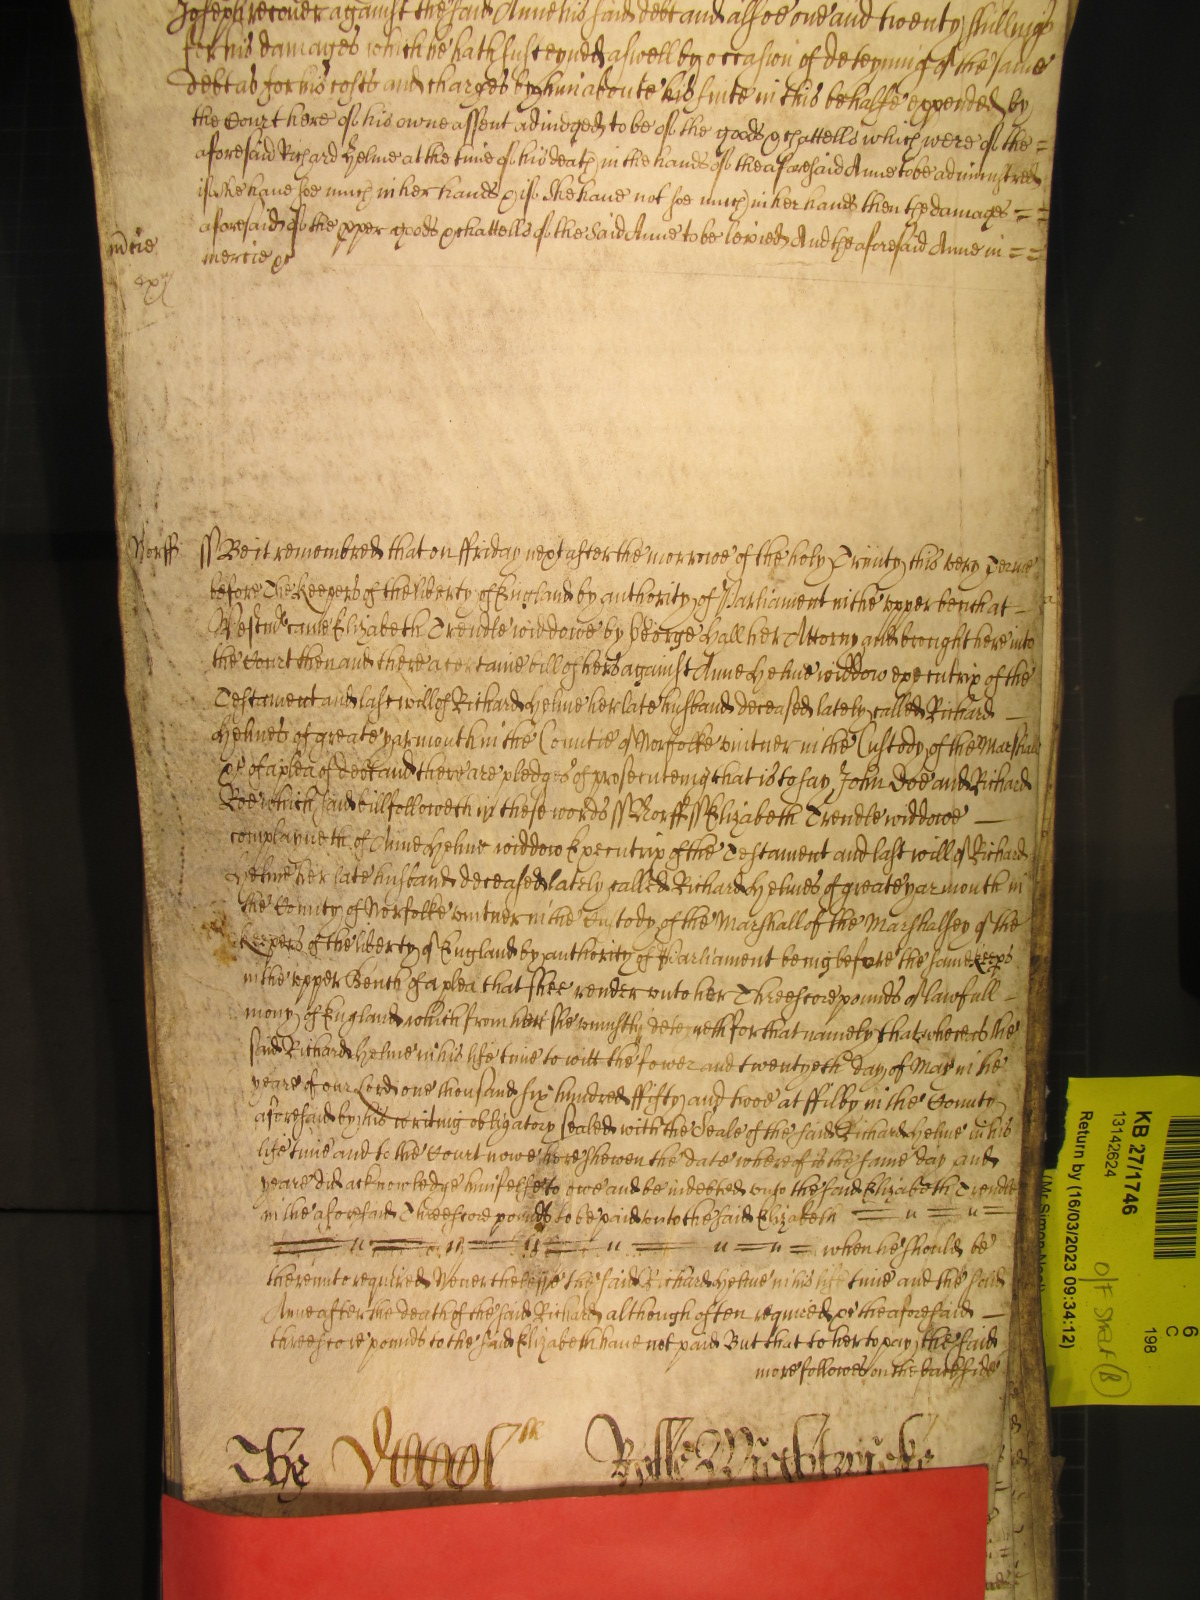 Joseph recover against the said Anne his said debt and alsoe one and twenty shillings
for his damages which he hath susteyned aswell by occasion of deteyning of the same
debt as for his costs and charges by him aboute his suite in this behalfe expended by
the Court here of his owne assent adiudged to be of the goods & chattells which were of the =
aforesaid Richard Helme at the time of his death in the hands of the aforesaid Anne to be administred
if she haue soe much in her hands & if she haue not soe much in her hands then the damages = =
aforesaid of the pper goods & chattells of the said Anne to be levied And the aforesaid Anne in = =
mcie
mercie &c
Norff
ss Be it remembred that on ffriday next after the morrowe of the holy Trinity this very Terme
before The Keepers of the liberty of England by authority of Parliament in the vpper bench at —
Westmr came Elizabeth Trendle widdowe by George Hall her Attorny and brought here into
the Court then and there a certaine bill of hers against Anne Helme widdow executrix of the
Testament and last will of Richard Helme her late husband deceased lately called Richard —
Helmes of greate yarmouth in the Countie of Norfolke vintner in the Custody of the Marshall
&c of a plea of debt and there are pledges of prosecuteing that is to say John Doe and Richard
Roe which said bill followeth in these words ss Norff ss Elizabeth Trendle widdowe —
complayneth of Anne Helme widdow Executrix of the Testament and last will of Richard
Helme her late husband deceased lately called Richard Helmes of greate yarmouth in
the County of Norfolke vintner in the Custody of the Marshall of the Marshalsey of the
Keepers of the liberty of England by authority of Parliament being before the same keeps
in the vpper Bench of a plea that shee render vnto her Threescore pounds of lawfull —
mony of England which from her she vniustly deteyneth for that namely that whereas the
said Richard Helme in his life time to witt the fower and twentyeth day of May in the
yeare of our Lord one thousand six hundred ffifty and twoe at ffilby in the County
aforesaid by his writinig obligatory sealed with the Seale of the said Richard Helme in his
life time and to the Court nowe here shewen the date whereof is the same day and
yeare did acknowledge himselfe to owe and be indebted vnto the said Elizabeth Trendle
in the aforesaid Threescore pounds to be paid vnto the said Elizabeth = " = " =
= " = " = " = " = " = " = when he should be
therevnto required Neverthelesse the said Richard Helme in his life time and the said
Anne after the death of the said Richard although often required &c the aforesaid —
threescore pounds to the said Elizabeth haue not paid But that to her to pay the said
more followes on the backside
The Roll
KB 27/1746
13142624
Return by (16/03/2023 09:34:12)
O/F Shelf B
6
C
198